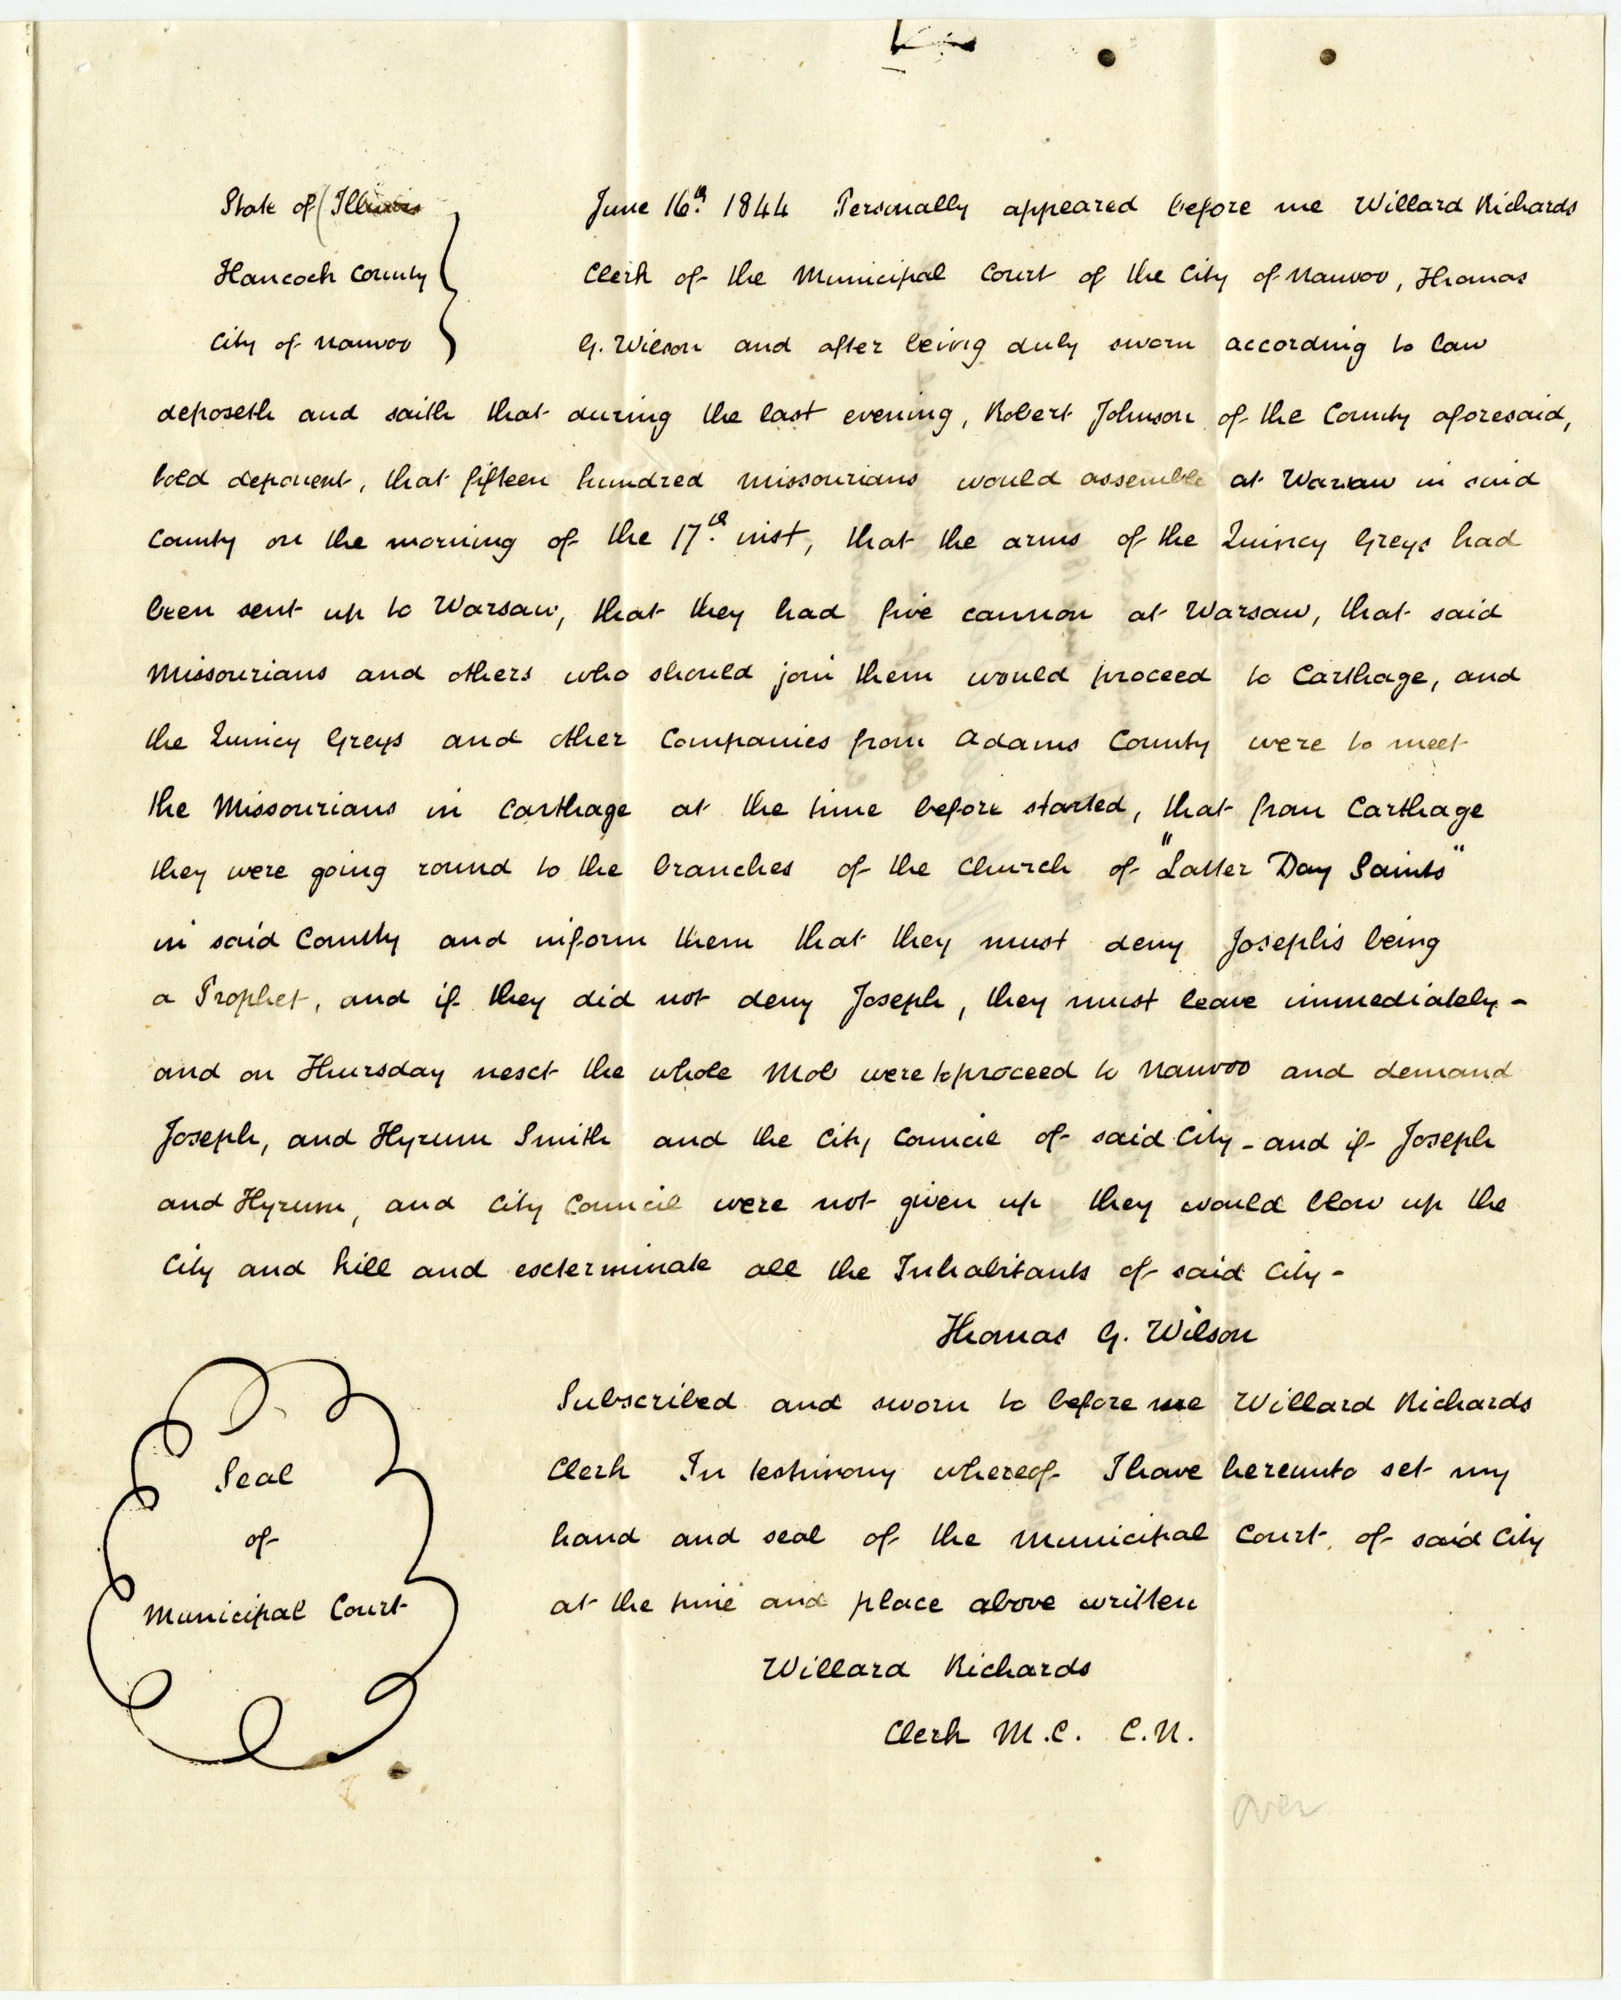 State of Illinois
Hancock County
City of Nauvoo
June 16th. 1844 Personally appeared before me Willard Richards
Clerk of the Municipal Court of the City of Nauvoo, Thomas
G. Wilson and after being duly sworn according to law
deposeth and saith that during the last evening, Robert Johnson of the County aforesaid,
told deponent, that fifteen hundred Missourians would assemble at Warsaw in said
County on the morning of the 17th. inst, that the arms of the Quincy Greys had
been sent up to Warsaw, that they had five cannon at Warsaw, that said
Missourians and others who should join them would proceed to Carthage, and
the Quincy Greys and other Companies from Adams County were to meet
the Missourians in Carthage at the time before started, that from Carthage
they were going round to the branches of the Church of "Latter Day Saints"
in said County and inform them that they must deny Joseph's being
a Prophet, and if they did not deny Joseph, they must leave immediately -
and on Thursday next the whole Mob were to proceed to Nauvoo and demand
Joseph, and Hyrum Smith and the City Council of said City - and if Joseph
and Hyrum, and City Council were not given up they would blow up the
City and kill and exterminate all the Inhabitants of said City -
Thomas G. Wilson
Subscribed and sworn to before me Willard Richards
Clerk In testimony whereof I have hereunto set my
hand and seal of the Municipal Court of said City
at the time and place above written
Willard Richards
Clerk M.C. C.N.
Seal
of
Municipal Court
over